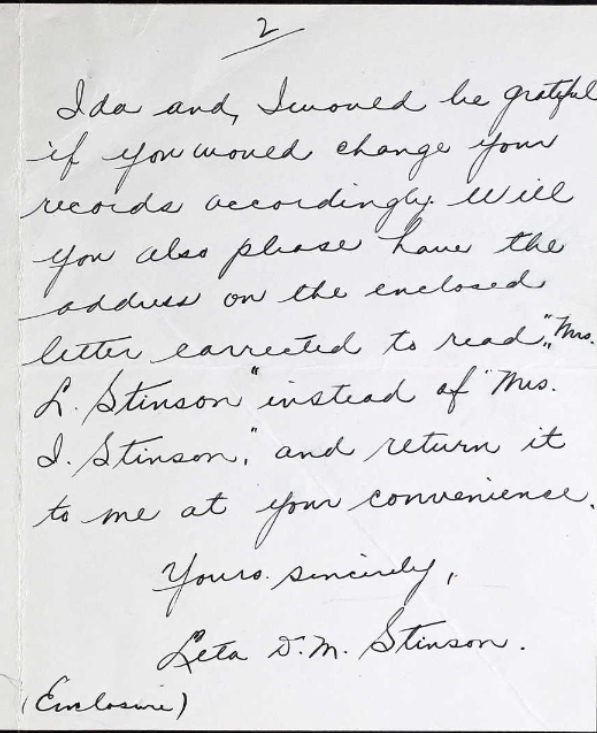 2
Ida and, I would be grateful
if you would change your
records accordingly. Will
you also please have the
address on the enclosed
letter corrected to read, "Mrs.
L. Stinson" instead of "Mrs.
I. Stinson," and return it
to me at your convenience.
Yours sincerely,
Leta D. M. Stinson.
(Enclosure)